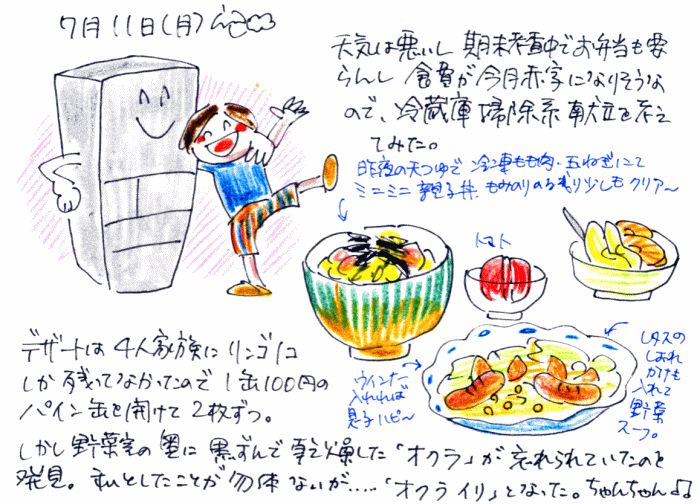 7月11日(月)
天気は悪いし 期末考査中でお弁当も要
らんし 食費が今月赤字になりそうな
ので、冷蔵庫掃除系献立を考え
てみた。
昨夜の天つゆで 冷凍もも肉・玉ねぎにて
ミニミニ親子丼。もみのりの残り少しもクリア〜
トマト
デザートは4人家族にリンゴ1コ
しか残ってなかったので1缶100円の
パイン缶を開けて2枚ずつ。
ウインナー
入れれば
息子ハピ〜
レタスの
しおれ
かけも
入れて
野菜
スープ。
しかし野菜室の奥に黒ずんで乾燥した「オクラ」が忘れられていたのを
発見。すいとしたことが勿体ないが.....「オクライリ」となった。ちゃんちゃん♫